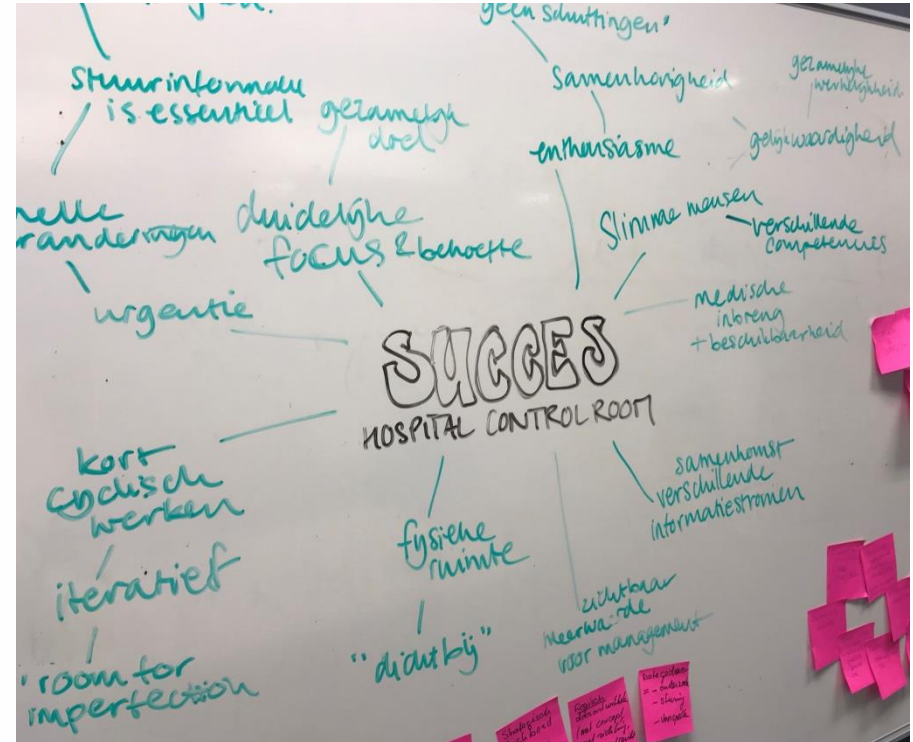 geen schuttingen"
stuurinformatie
is essentieel
gezamelijk
doel
samenhorigheid
enthousiasme
gezamelijke
werkelijkheid
gelijkwaardigheid
nelle
randeringen
duidelijke
focus & behoefte
slimme mensen
verschillende
competenties
urgentie
medische
inbreng
+ beschikbaarheid
SUCCES
HOSPITAL CONTROL ROOM
kort
cyclisch
werken
iteratief
"room for
imperfection
fysieke
ruimte
"dichtbij"
samenkomst
verschillende
informatiestromen
zichtbaar
meerwaarde
voor management